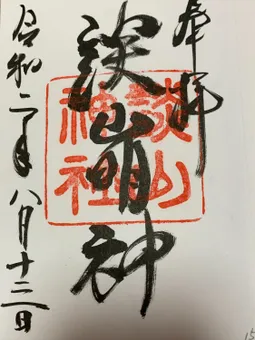 奉拝
談山明神
談山
神社
令和二年八月十二日
15